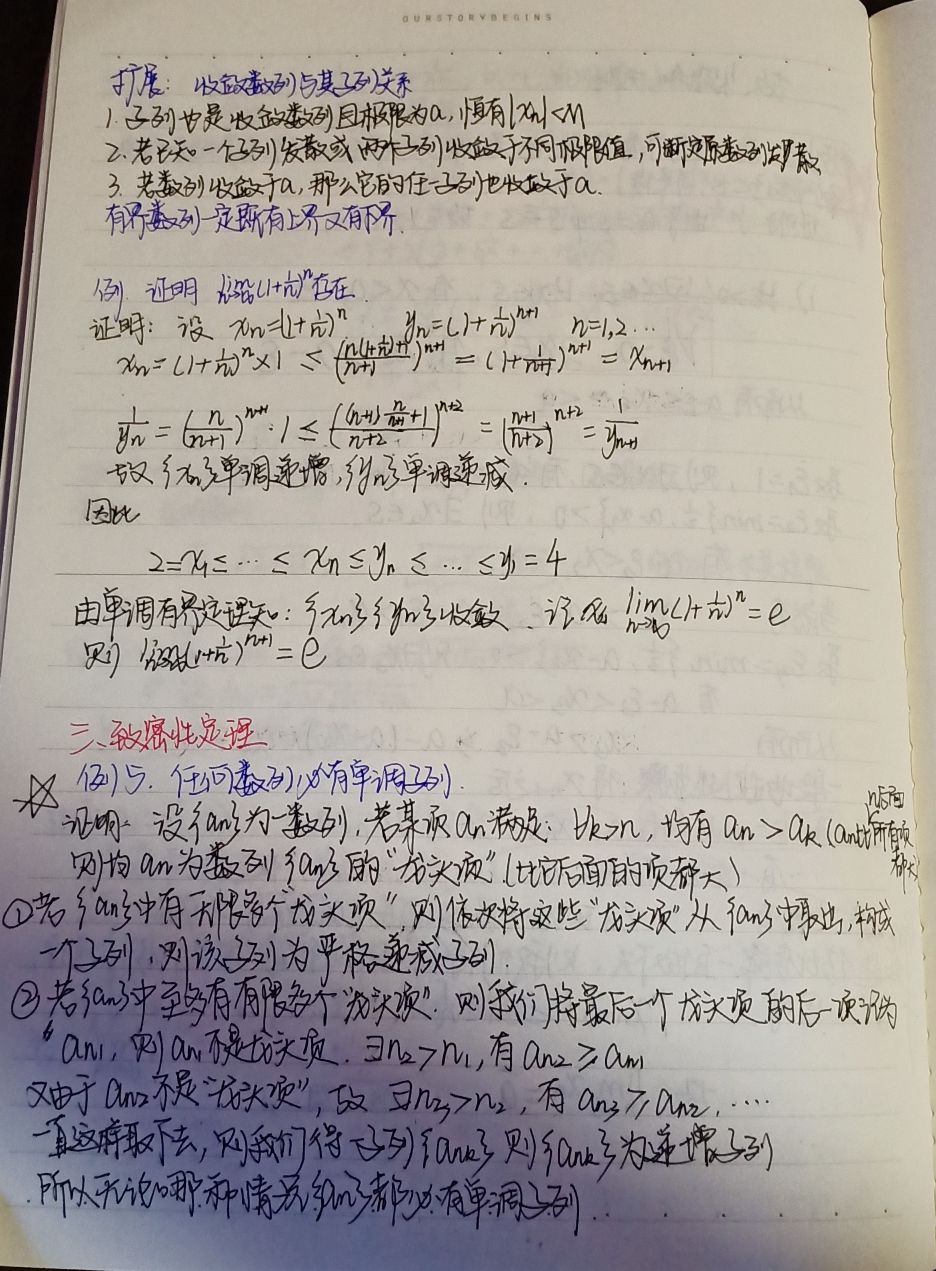 OURSTORYBEGINS
扩展: 收敛数列与其子列关系
1. 子列也是收敛数列且极限为a, 恒有|xn|<M
2. 若已知一个子列发散或两个子列收敛于不同极限值, 可断定原数列发散
3. 若数列收敛于a, 那么它的任一子列也收敛于a.
有界数列一定既有上界又有下界.
例. 证明 lim n→∞ (1+1/n)^n 存在.
证明: 设 xn=(1+1/n)^n yn=(1+1/n)^(n+1) n=1,2…
xn=(1+1/n)^n×1 ≤ ((n(1+1/n)+1)/(n+1))^(n+1) = (1+1/(n+1))^(n+1) = x_(n+1)
1/yn = (n/(n+1))^(n+1)·1 ≤ (((n+1)·n/(n+1)+1)/(n+2))^(n+2) = ((n+1)/(n+2))^(n+2) = 1/y_(n+1)
故{xn}单调递增, {yn}单调递减.
因此
2=x1≤…≤ xn≤yn ≤…≤y1=4
由单调有界定理知: {xn}{yn}收敛. 记 lim n→∞ (1+1/n)^n = e
则 lim n→∞ (1+1/n)^(n+1) = e
三、致密性定理
例5. 任何数列必有单调子列.
证明: 设{an}为一数列, 若某项an满足: ∀k>n, 均有 an>ak (an比n后面所有项都大)
则称an为数列{an}的"龙头项" (比后面的项都大)
①若{an}中有无限多个"龙头项", 则依次将这些"龙头项"从{an}中取出, 构成
一个子列, 则该子列为严格递减子列.
②若{an}中至多有有限多个"龙头项". 则我们将最后一个龙头项的后一项记为
an1, 则an1不是龙头项. ∃n2>n1, 有an2≥an1
又由于an2不是"龙头项", 故 ∃n3>n2, 有 an3≥an2, ……
一直这样取下去, 则我们得一子列{ank} 则{ank}为递增子列
所以无论哪种情况{an}都必有单调子列.